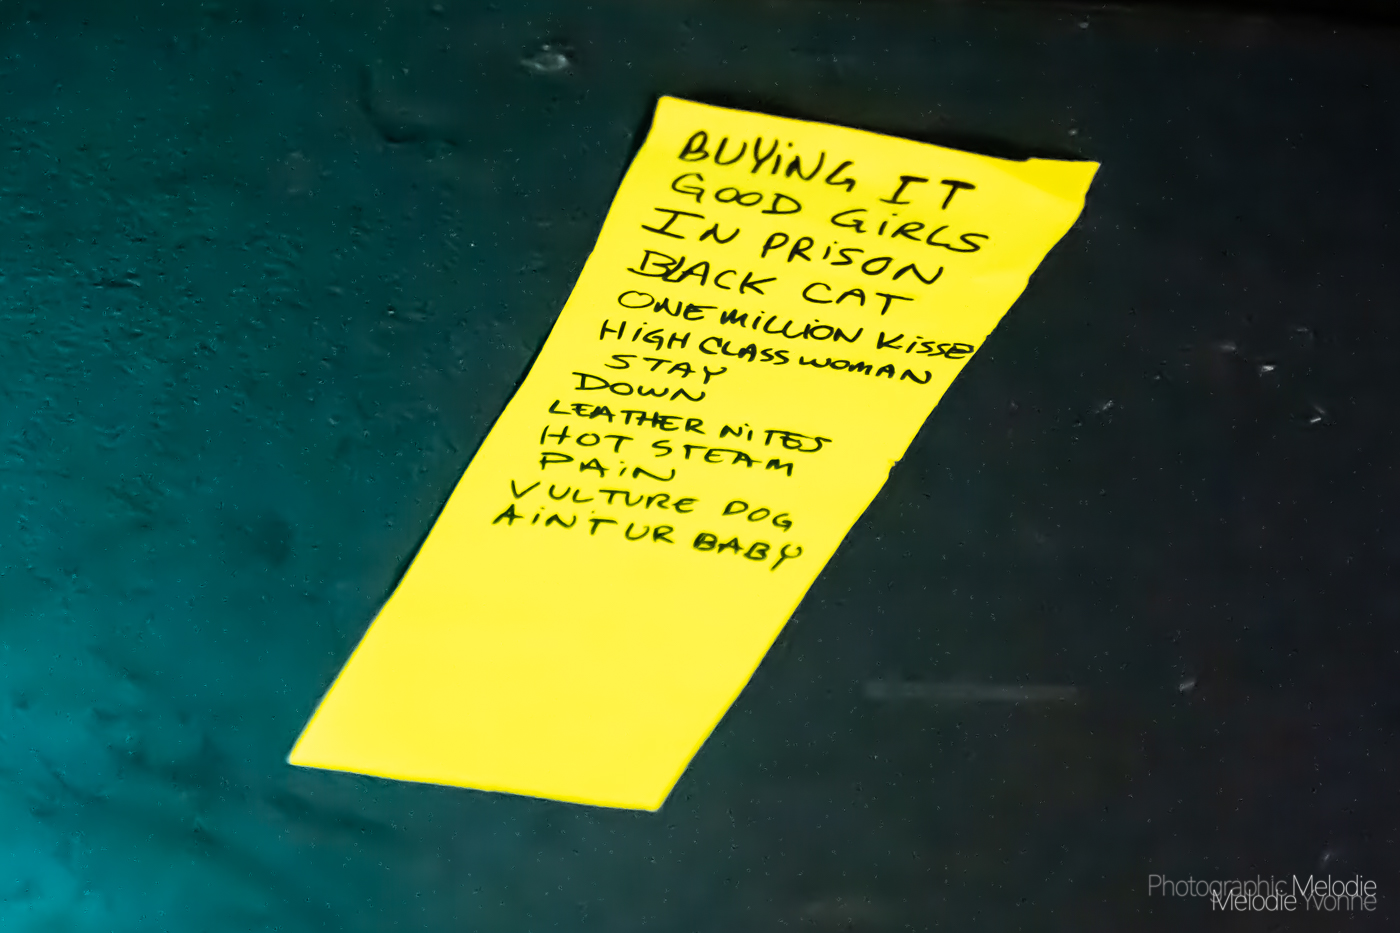 BUYiNG IT
GOOD GiRLS
IN PRiSON
BLACK CAT
ONE MILLION KiSSES
HiGH CLASS WOMAN
STAY
DOWN
LEATHER NiTES
HOT STEAM
PAiN
VULTURE DOG
AiN'T UR BABY
Photographic Melodie
Melodie Yvonne